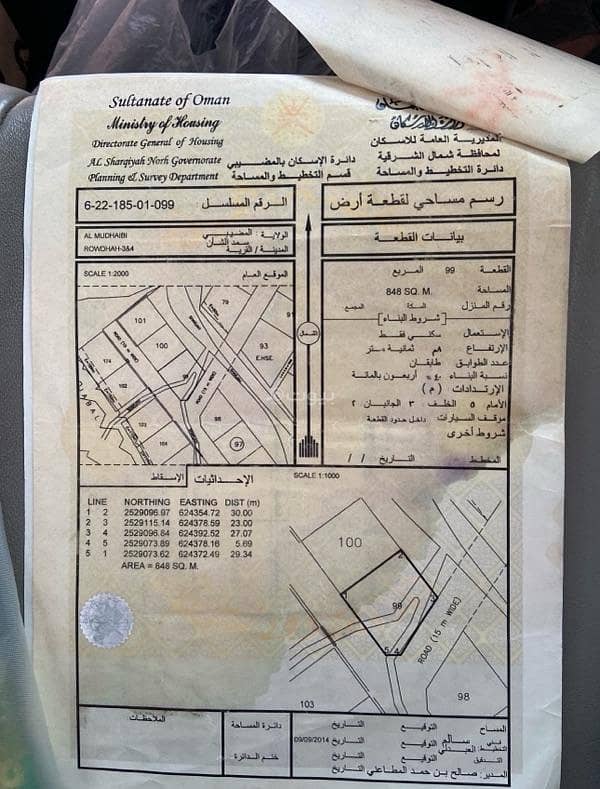 Sultanate of Oman
Ministry of Housing
Directorate General of Housing
AL Sharqiyah Norh Governorate
Planning & Survey Department
المديرية العامة للاسكان
لمحافظة شمال الشرقية
دائرة التخطيط والمساحة
دائرة الإسكان بالمضيبي
قسم التخطيط والمساحة
رسم مساحي لقطعة أرض
الرقم المسلسل 6-22-185-01-099
بيانات القطعة
الولاية : المضيبي AL MUDHAIBI
المدينة / القرية : سمد الشأن ROWDHAH-3&4
الموقع العام SCALE 1:2000
79
91
101
100
93
E.HSE.
ROAD (15 m WIDE)
174
102
103
104
98
97
JABAL
الشمال
القطعة 99 المربع
المساحة 848 SQ. M.
رقم المنزل السكة المجمع
[شروط البناء]
الإستعمال سكني فقط
الإرتفاع ٨م ثمانية متر
عدد الطوابق طابقان
نسبة البناء ٤٠٪ أربعون بالمائة
الإرتدادات ( م )
الأمام ٥ الخلف ٣ الجانبان ٢
موقف السيارات داخل حدود القطعة
شروط أخرى
المخطط التاريخ / /
الإحداثيات الإسقاط
LINE NORTHING EASTING DIST (m)
1 2 2529096.97 624354.72 30.00
2 3 2529115.14 624378.59 23.00
3 4 2529096.84 624392.52 27.07
4 5 2529073.89 624378.16 5.69
5 1 2529073.62 624372.49 29.34
AREA = 848 SQ. M.
SCALE 1:1000
100
2
1
99
3
5 4
ROAD (15 m WIDE)
98
103
بيوت
الملاحظات
دائرة المساحة
ختم الدائرة
المساح التوقيع التاريخ
فني التخطيط سالم العبدلي التوقيع التاريخ 09/09/2014
التدقيق التوقيع التاريخ
المدير: صالح بن حمد المطاعني التاريخ